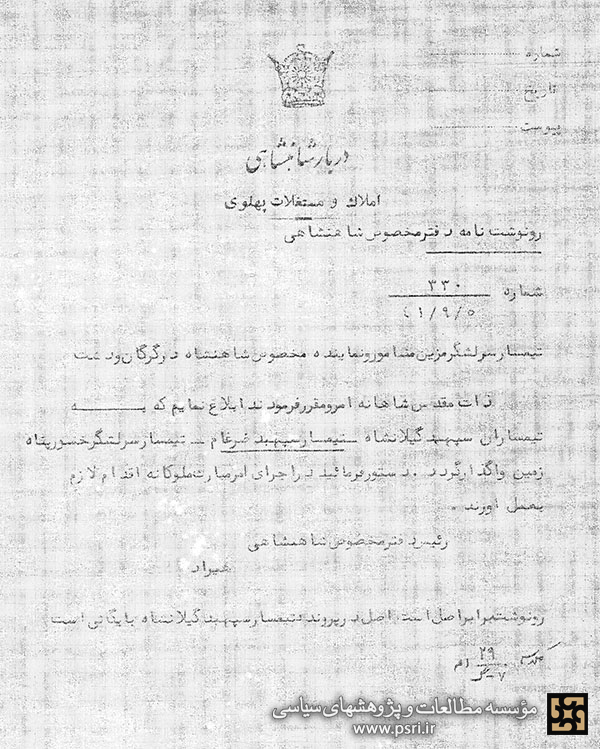 شماره
تاریخ
پیوست
دربار شاهنشاهی
املاک و مستغلات پهلوی
رونوشت نامه دفتر مخصوص شاهنشاهی
شماره ۳۳۰
۴۱/۹/۵
تیمسار سرلشگر مزین مامور و نماینده مخصوص شاهنشاه در گرگان و دشت
ذات مقدس شاهانه امر و مقرر فرمودند ابلاغ نمایم که به
تیمساران سپهبد گیلانشاه ـ تیمسار سپهبد ضرغام ـ تیمسار سرلشگر خسروپناه
زمین واگذار گردد . دستور فرمائید در اجرای امر مبارک ملوکانه اقدام لازم
بعمل آورند .
رئیس دفتر مخصوص شاهنشاهی
هیراد
رونوشت برابر اصل است اصل در پرونده تیمسار سپهبد گیلانشاه بایگانی است
۲۹
۷-گ
مؤسسه مطالعات و پژوهشهای سیاسی
www.psri.ir